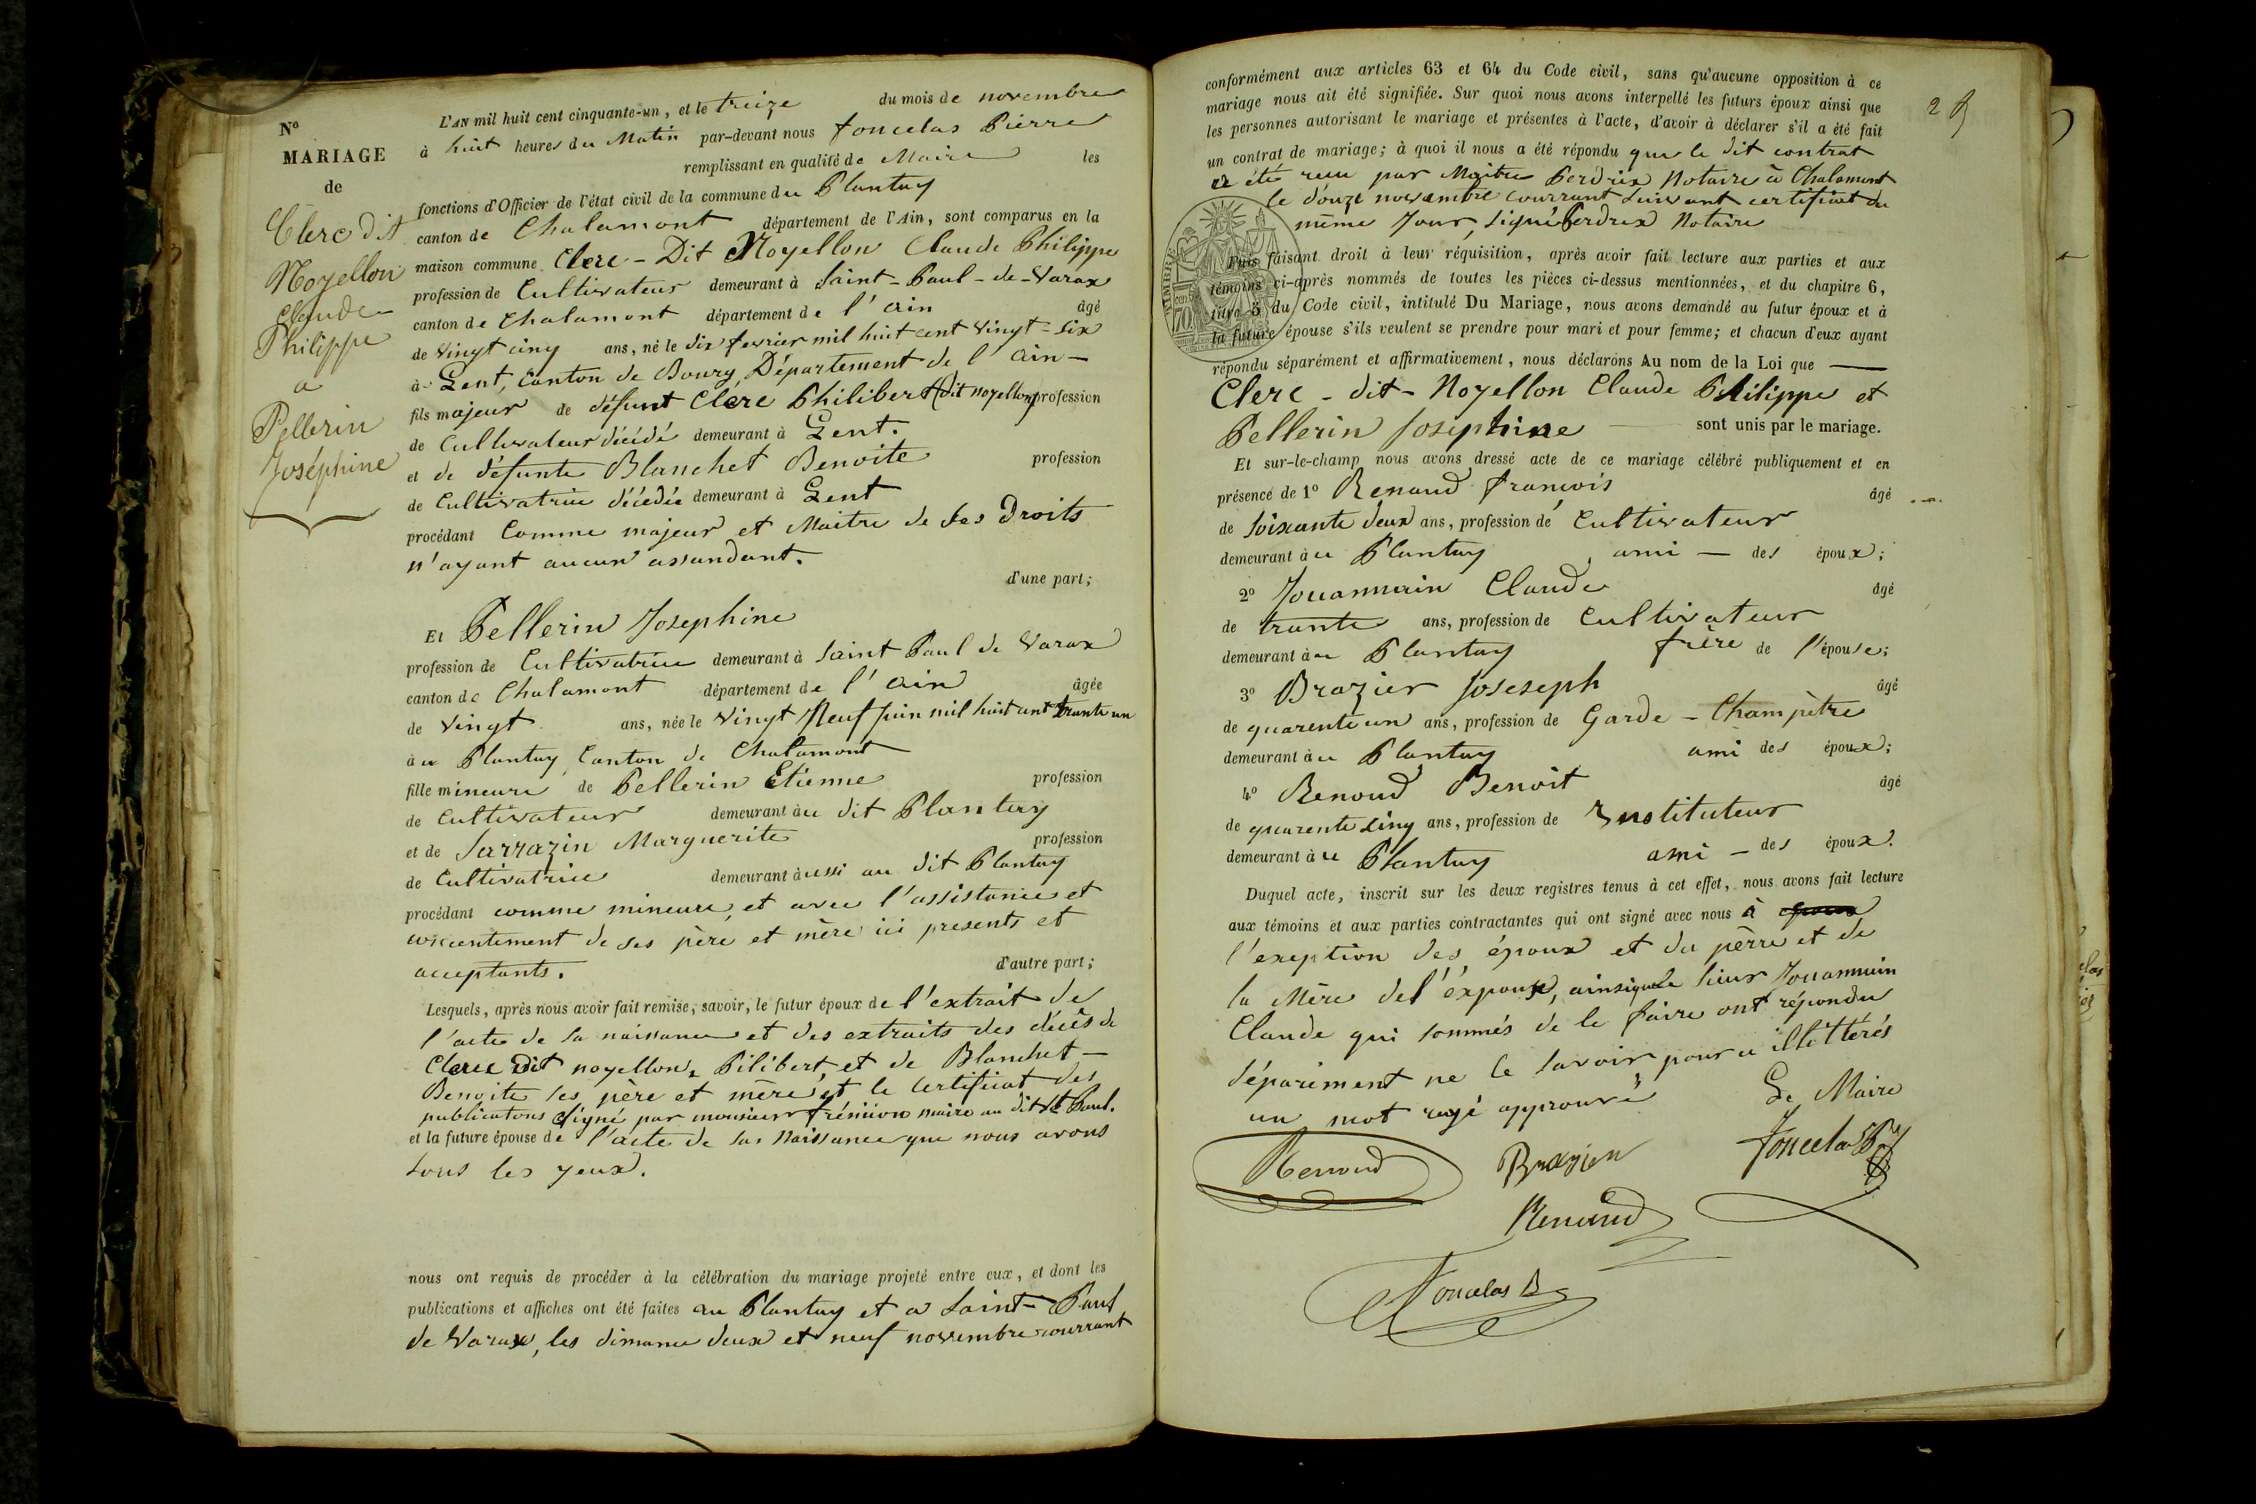 No
MARIAGE
de
Clerc dit
Noyellon
Claude
Philippe
a
Pellerin
Joséphine
L'AN mil huit cent cinquante-un, et le treize du mois de novembre
à huit heures du Matin par-devant nous Joncelas Pierre
remplissant en qualité de Maire les
fonctions d'Officier de l'état civil de la commune du Plantay
canton de Chalamont département de l'Ain, sont comparus en la
maison commune Clerc - Dit Noyellon Claude Philippe
profession de Cultivateur demeurant à Saint-Paul-de-Varax
canton de Chalamont département de l'ain âgé
de Vingt cinq ans, né le dix fevrier mil huit cent vingt-six
à Lent, Canton de Bourg, Département de l'ain -
fils majeur de défunt Clerc Philibert (dit noyellon) profession
de Cultivateur décédé demeurant à Lent.
et de défunte Blanchet Benoite profession
de Cultivatrice décédée demeurant à Lent
procédant Comme majeur et Maitre de ses Droits
n'ayant aucun assandant.
d'une part;
Et Pellerin Josephine
profession de Cultivatrice demeurant à Saint Paul de Varax
canton de Chalamont département de l'ain âgée
de Vingt ans, née le Vingt Neuf Juin mil huit cent trante un
à u Plantay, Canton de Chalamont
fille mineure de Pellerin Etienne profession
de Cultivateur demeurant àu dit Plantay
et de Sarrazin Marguerite profession
de Cultivatrice demeurant àussi au dit Plantay
procédant comme mineure, et avec l'assistance et
concentement de ses père et mère ici presents et
acceptants.
d'autre part;
Lesquels, après nous avoir fait remise, savoir, le futur époux de l'extrait de
l'acte de sa naissance et des extraits des décès de
Clerc dit noyellon, Pilibert, et de Blanchet -
Benoite ses père et mère et le certificat des
publicatons signé par monsieur maire au dit St Paul.
et la future épouse de l'acte de sa Naissance que nous avons
sous les yeux.
nous ont requis de procéder à la célébration du mariage projeté entre eux, et dont les
publications et affiches ont été faites au Plantay et a Saint-Paul
de Varax, les dimance deux et neuf novembre courrant
29
conformément aux articles 63 et 64 du Code civil, sans qu'aucune opposition à ce
mariage nous ait été signifiée. Sur quoi nous avons interpellé les futurs époux ainsi que
les personnes autorisant le mariage et présentes à l'acte, d'avoir à déclarer s'il a été fait
un contrat de mariage; à quoi il nous a été répondu que le dit contrat
a été recu par Maitre Perdrix Notaire à Chalamont
le douze novembre courrant suivant certificat du
même Jour, signé Perdrix Notaire
Puis faisant droit à leur réquisition, après avoir fait lecture aux parties et aux
témoins ci-après nommés de toutes les pièces ci-dessus mentionnées, et du chapitre 6,
titre 5 du Code civil, intitulé Du Mariage, nous avons demandé au futur époux et à
la future épouse s'ils veulent se prendre pour mari et pour femme; et chacun d'eux ayant
répondu séparément et affirmativement, nous déclarons Au nom de la Loi que
Clerc - dit - Noyellon Claude Philippe et
Pellerin Josephine sont unis par le mariage.
Et sur-le-champ nous avons dressé acte de ce mariage célébré publiquement et en
présence de 1o Renaud francois âgé
de soixante deux ans, profession de Cultivateur
demeurant àu Plantay, ami - des époux;
2o Jouannain Claude âgé
de trante ans, profession de Cultivateur
demeurant àu Plantay frère de l'épouse;
3o Brazier Joseseph âgé
de quarente un ans, profession de Garde - Champêtre
demeurant àu Plantay ami des époux;
4o Renoud Benoit âgé
de quarente cinq ans, profession de Instituteur
demeurant àu Plantay ami - des époux.
Duquel acte, inscrit sur les deux registres tenus à cet effet, nous avons fait lecture
aux témoins et aux parties contractantes qui ont signé avec nous à
l'exeption des époux et du pèrre et de
la Mère del'éxpouse, ainsique le sieur Jouannain
Claude qui sommés de le faire ont répondu
séparément ne le savoir pour a illittérés
un mot rayé approuvé
Le Maire
Renoud Brazier Joncelas Pre
Renaud
Joncelas B